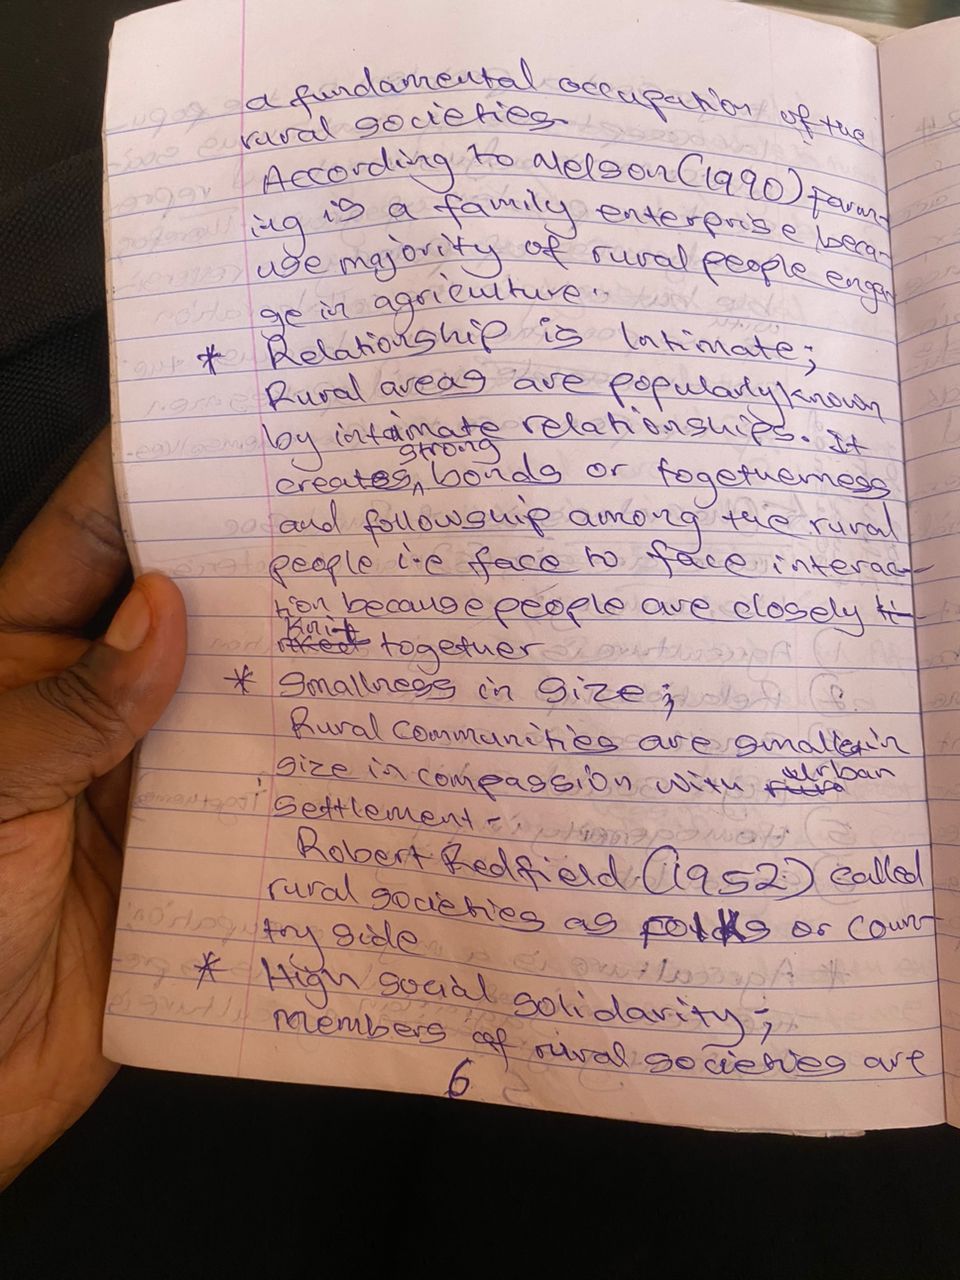 a fundamental occupation of the
rural societies
According to Nelson (1990) Farm-
ing is a family enterprise beca-
use majority of rural people enga-
ge in agriculture.
* Relationship is Intimate;
Rural areas are popularly known
by intimate relationships. It
strong
creates bonds or togetherness
and followship among the rural
people i.e face to face interac-
tion because people are closely
knit
together
* Smallness in size;
Rural communities are smaller in
size in compassion with urban
settlement.
Robert Redfield (1952) called
rural societies as folks or coun-
try side
* High social solidarity;
members of rural societies are
6